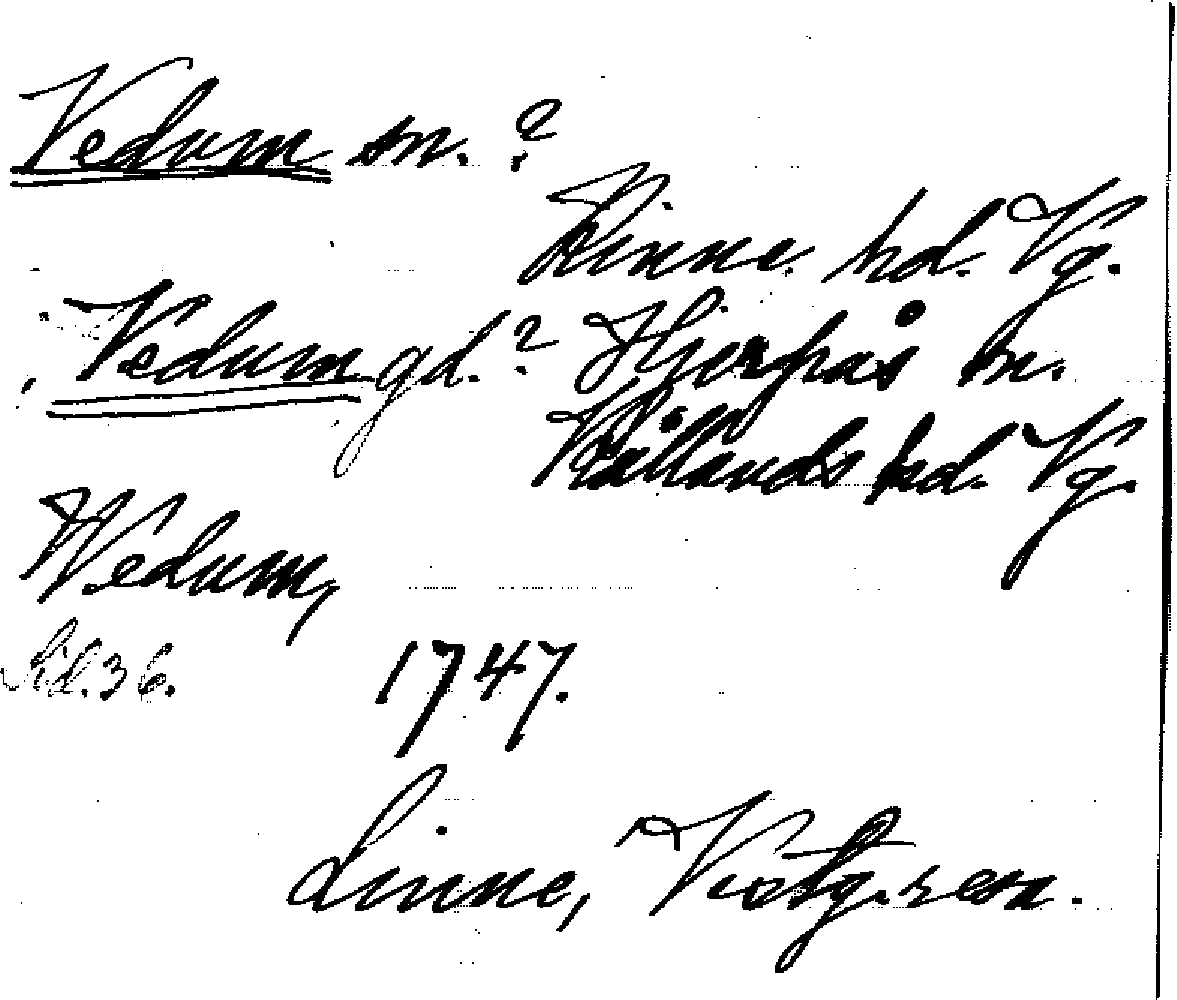 Vedum sn. ?
Kinne hd. Vg.
Vedum gd. ? Hjerpås sn.
Kållands hd. Vg.
Wedum,
Sid. 36.
1747.
Linne, Västg. resa.